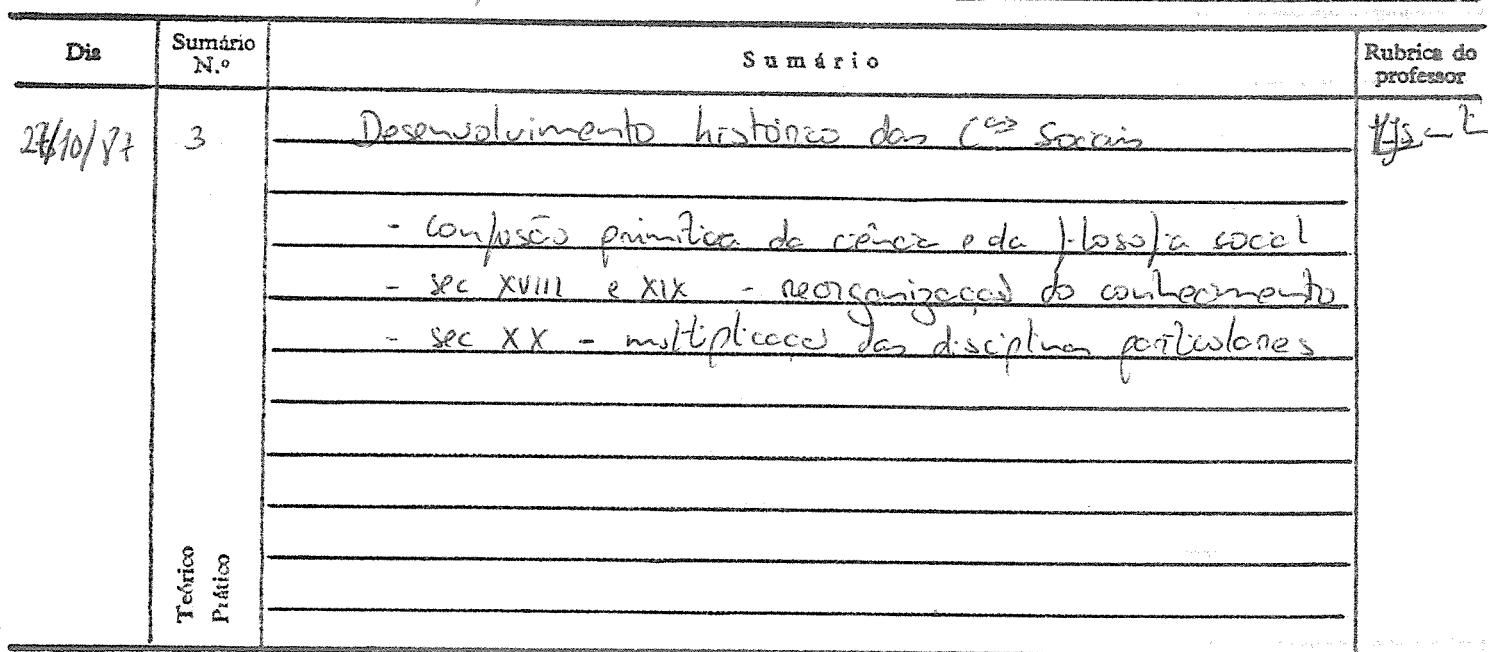 Dia
Sumário N.º
Sumário
Rubrica do professor
/10/87
3
Desenvolvimento histórico das Cas Sociais
- confusão primitiva da ciência e da filosofia social
- sec XVIII e XIX - reorganização do conhecimento
- sec XX - multiplicação das disciplinas particulares
Teórico
Prático